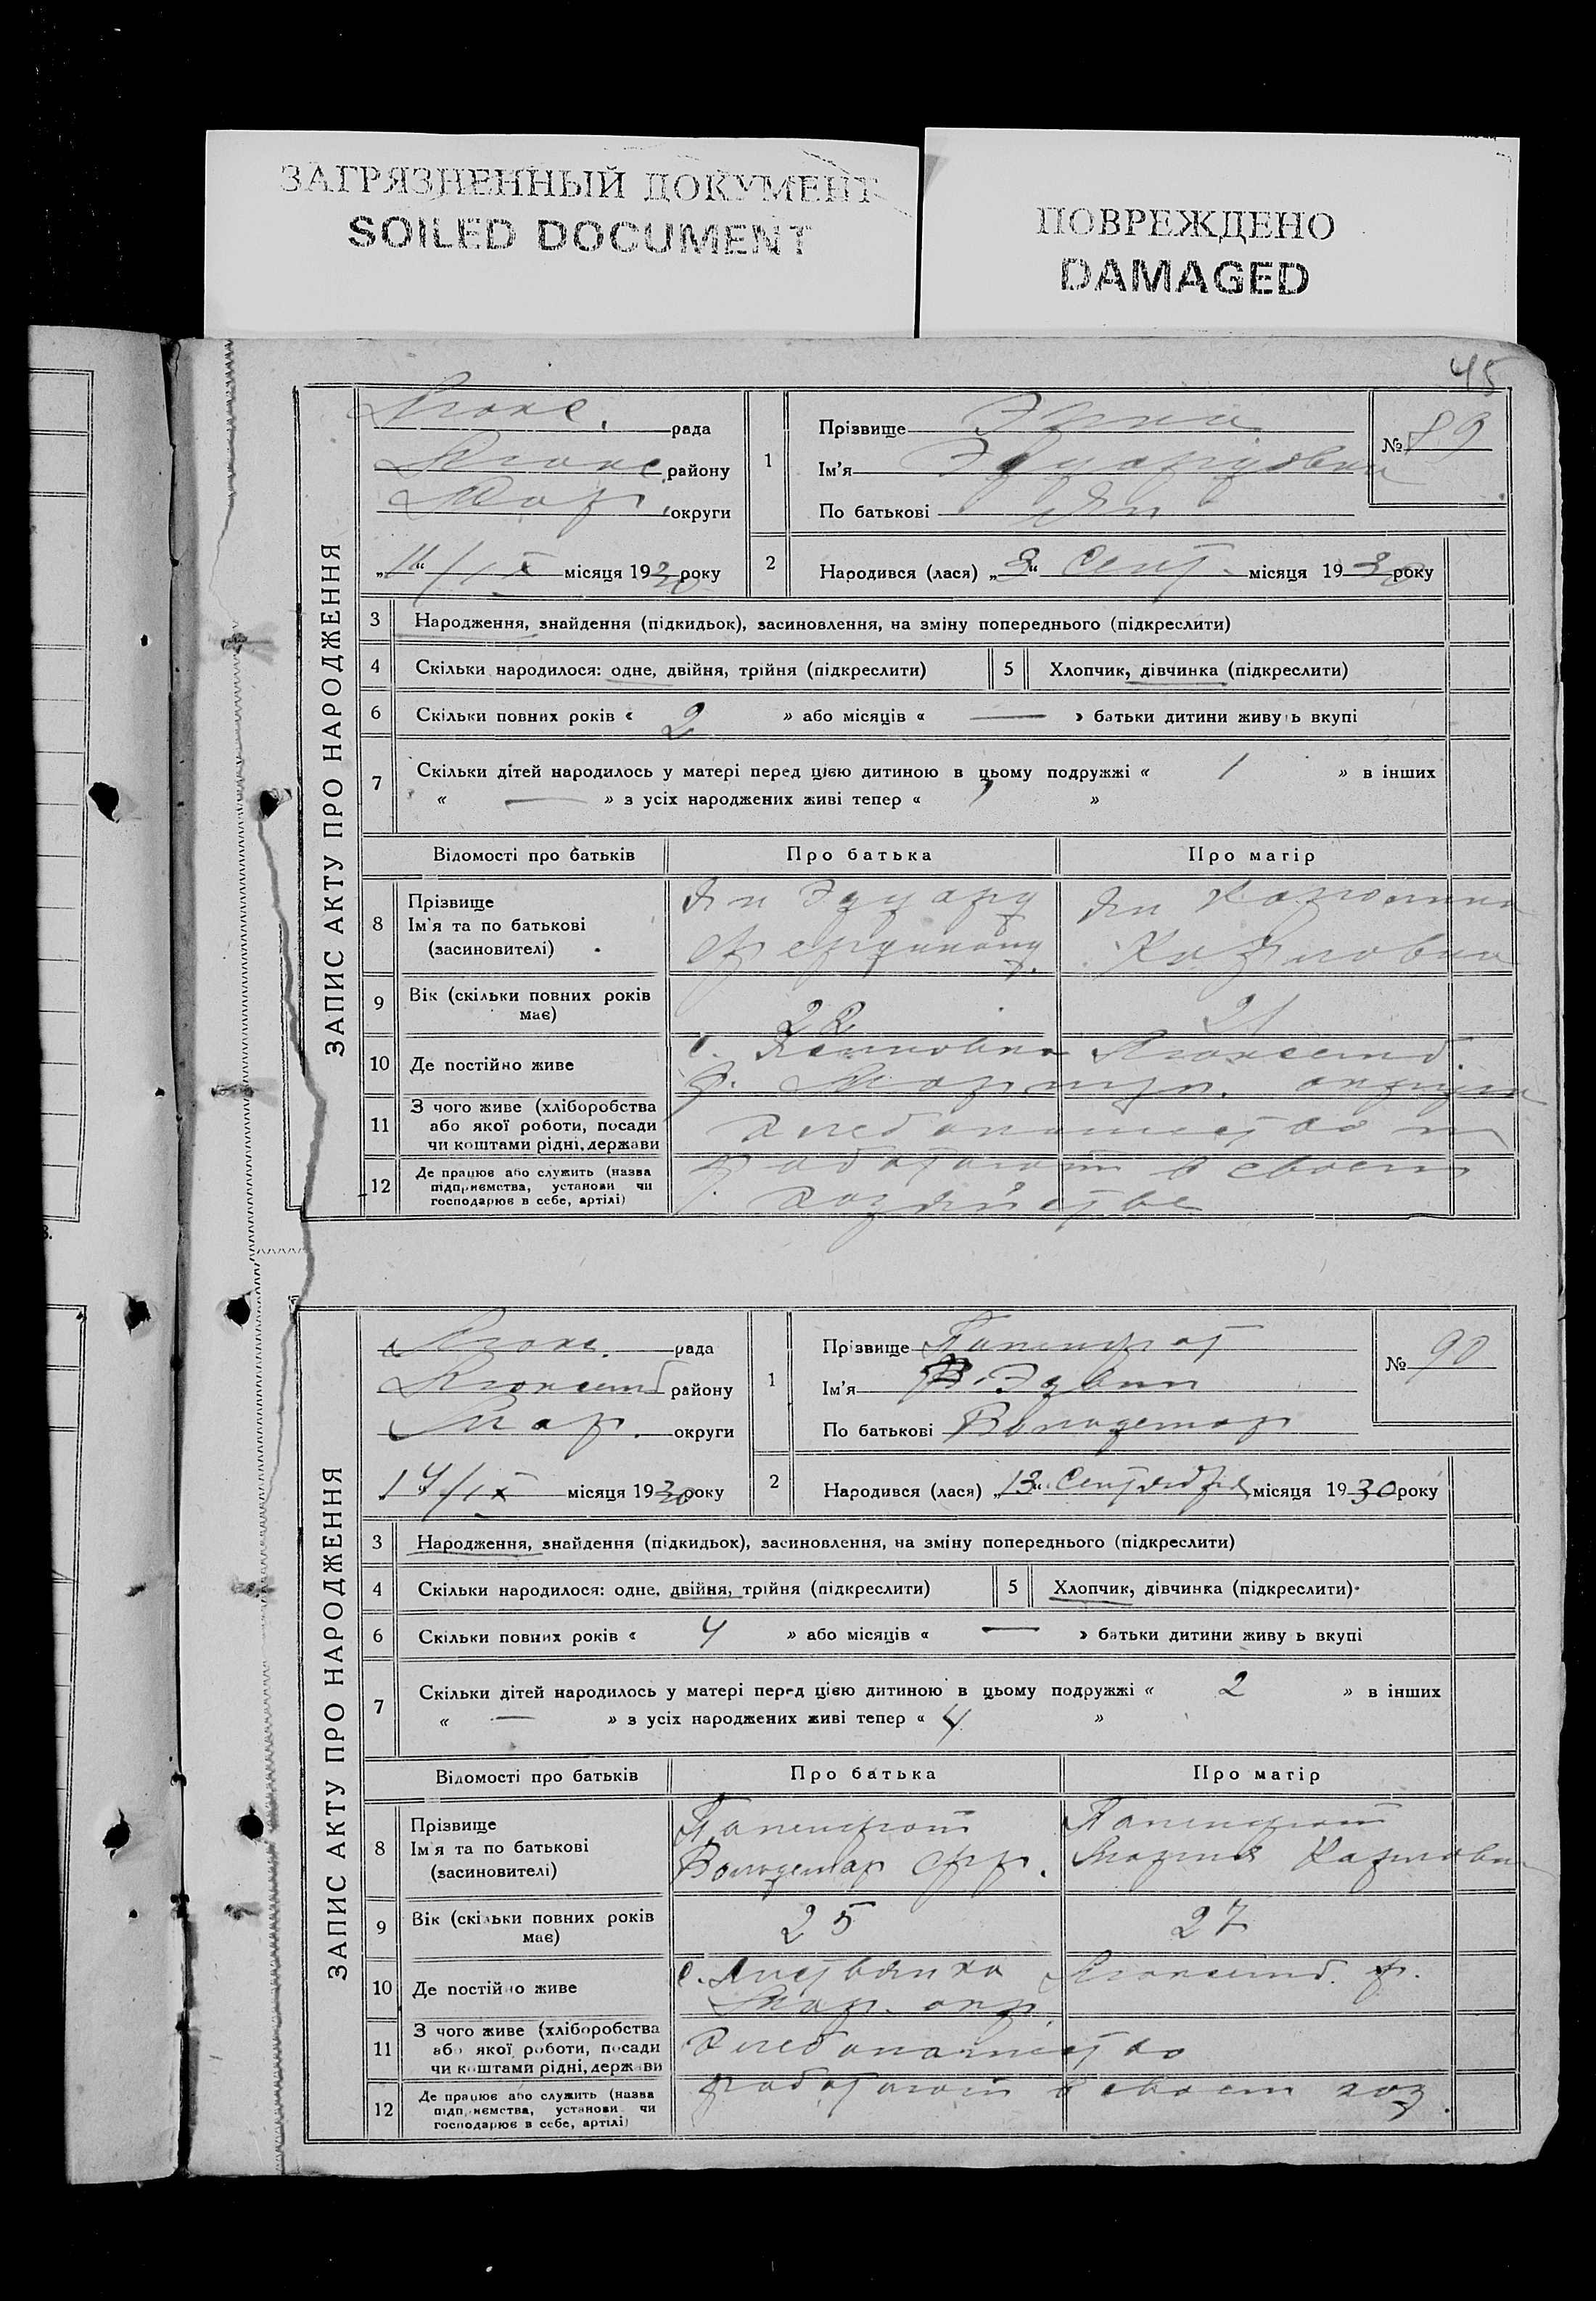 ЗАГРЯЗНЕННЫЙ ДОКУМЕНТ
SOILED DOCUMENT
ПОВРЕЖДЕНО
DAMAGED
45
ЗАПИС АКТУ ПРО НАРОДЖЕННЯ
Люкс. рада
Люкс. району
Мар. округи
„11“/IX місяця 1930 року
1 Прізвище Эрна
Ім'я Эдуардовна
По батькові Ян
№ 89
2 Народився (лася) „3“ Сент. місяця 1930 року
3 Народження, знайдення (підкидьок), засиновлення, на зміну попереднього (підкреслити)
4 Скільки народилося: одне, двійня, трійня (підкреслити) 5 Хлопчик, дівчинка (підкреслити)
6 Скільки повних років « 2 » або місяців « — » батьки дитини живуть вкупі
7 Скільки дітей народилось у матері перед цією дитиною в цьому подружжі « 1 » в інших
« — » з усіх народжених живі тепер « »
Відомості про батьків Про батька Про матір
8 Прізвище
Ім'я та по батькові
(засновителі)
Ян Эдуард
Фердинанд.
Ян
Карловна
9 Вік (скільки повних років
має)
22 21
10 Де постійно живе
с. Люксемб.
р. Мариуп. округи
11 З чого живе (хліборобства
або якої роботи, посади
чи коштами рідні, держави
хлебопашество
12 Де працює або служить (назва
підприємства, установи чи
господарює в себе, артілі)
работают в своем
хозяйстве
ЗАПИС АКТУ ПРО НАРОДЖЕННЯ
Люкс. рада
Люксемб району
Мар. округи
14/IX місяця 1930 року
1 Прізвище Папендрот
Ім'я Эдвин
По батькові Володемар
№ 90
2 Народився (лася) „13“ Сентября місяця 1930 року
3 Народження, знайдення (підкидьок), засиновлення, на зміну попереднього (підкреслити)
4 Скільки народилося: одне, двійня, трійня (підкреслити) 5 Хлопчик, дівчинка (підкреслити)
6 Скільки повних років « 4 » або місяців « — » батьки дитини живу ь вкупі
7 Скільки дітей народилось у матері перед цією дитиною в цьому подружжі « 2 » в інших
« — » з усіх народжених живі тепер « 4 »
Відомості про батьків Про батька Про матір
8 Прізвище
Ім'я та по батькові
(засиновителі)
Папендрот
Володемар Фр.
Папендрот
Мария Карловна
9 Вік (скільки повних років
має)
25 27
10 Де постійно живе
с. Листвянка Люксемб. р.
Мар. окр.
11 З чого живе (хліборобства
або якої роботи, посади
чи коштами рідні, держави
хлебопашество
12 Де працює або служить (назва
підприємства, установи чи
господарює в себе, артілі)
работают в своем хоз.